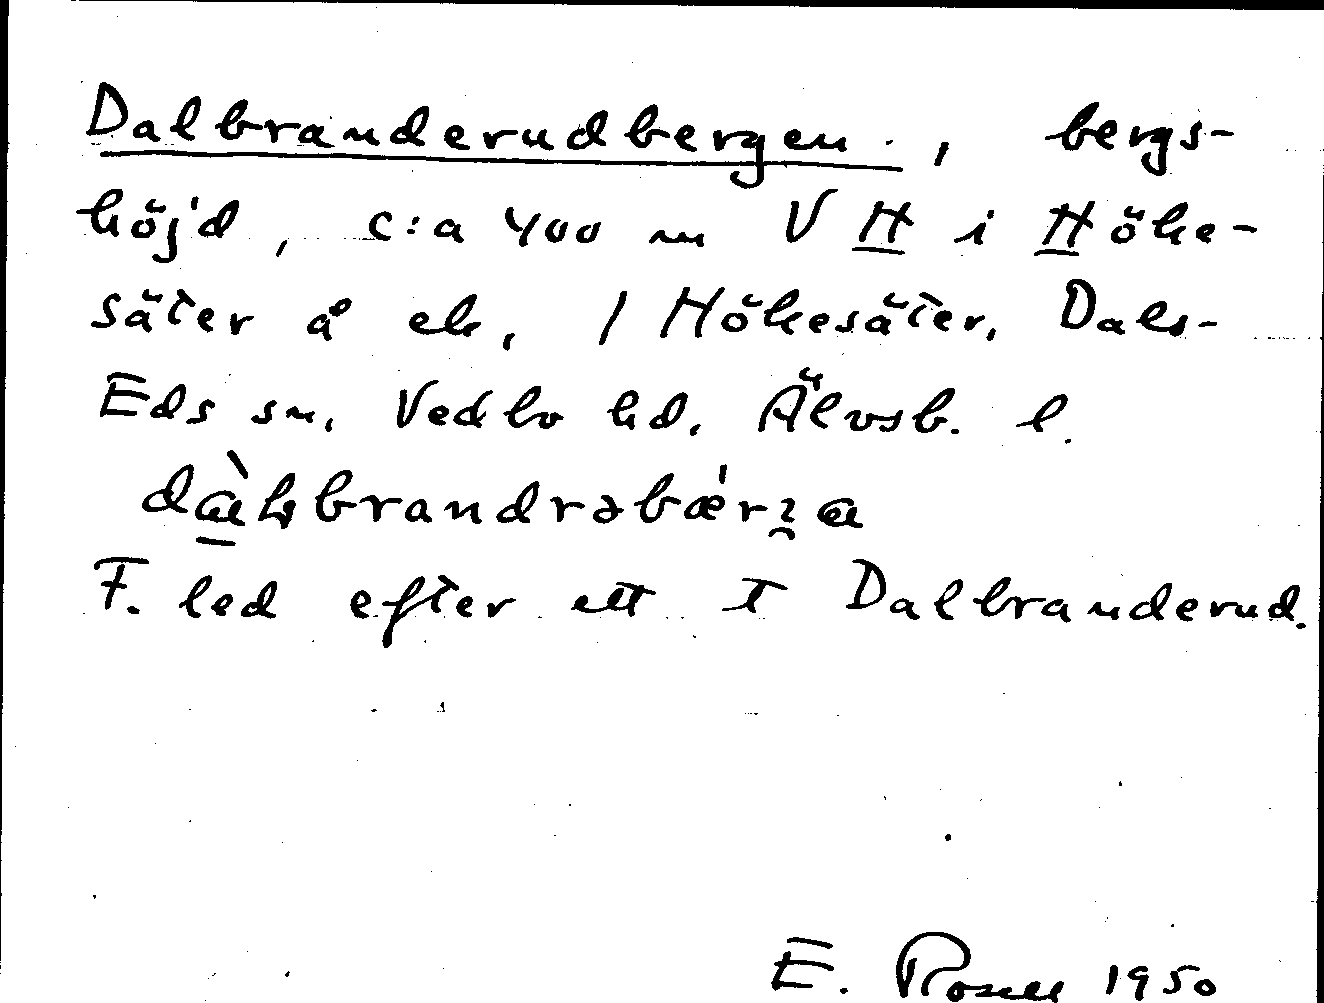 Dalbranderudbergen., bergs-
höjd, c:a 400 m V H i Hökе-
säter å ek, 1 Hökesäter, Dals-
Eds sn, Vedbo hd, Älvsb. l.
brandrəbær
F. led efter ett † Dalbranderud.
E. 1950